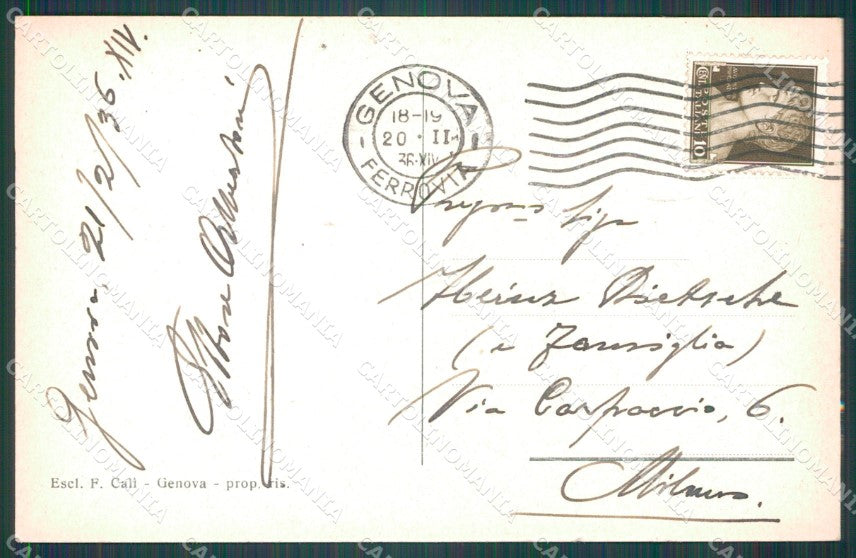 Genova 21/2/36.XIV.
GENOVA
18-19
20 · II
36·XIV
FERROVIA
10
Sig
Heinz Dietsche
(e Famiglia)
Via Carpaccio, 6.
Milano.
Escl. F. Calì - Genova - prop. ris.
CARTOLINOMANIA